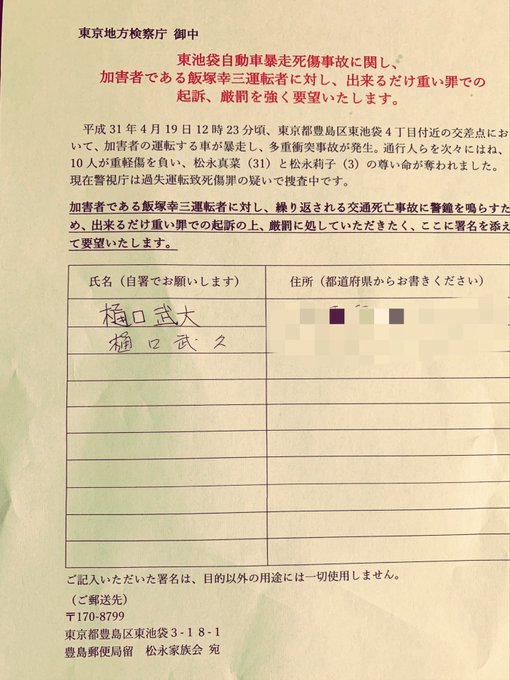 東京地方検察庁 御中
東池袋自動車暴走死傷事故に関し、
加害者である飯塚幸三運転者に対し、出来るだけ重い罪での
起訴、厳罰を強く要望いたします。
平成 31 年 4 月 19 日 12 時 23 分頃、東京都豊島区東池袋 4 丁目付近の交差点にお
いて、加害者の運転する車が暴走し、多重衝突事故が発生。通行人らを次々にはね、
10 人が重軽傷を負い、松永真菜（31）と松永莉子（3）の尊い命が奪われました。
現在警視庁は過失運転致死傷罪の疑いで捜査中です。
加害者である飯塚幸三運転者に対し、繰り返される交通死亡事故に警鐘を鳴らすた
め、出来るだけ重い罪での起訴の上、厳罰に処していただきたく、ここに署名を添え
て要望いたします。
氏名（自署でお願いします）
住所（都道府県からお書きください）
樋口武大
樋口武久
ご記入いただいた署名は、目的以外の用途には一切使用しません。
（ご郵送先）
〒170-8799
東京都豊島区東池袋３-１８-１
豊島郵便局留 松永家族会 宛